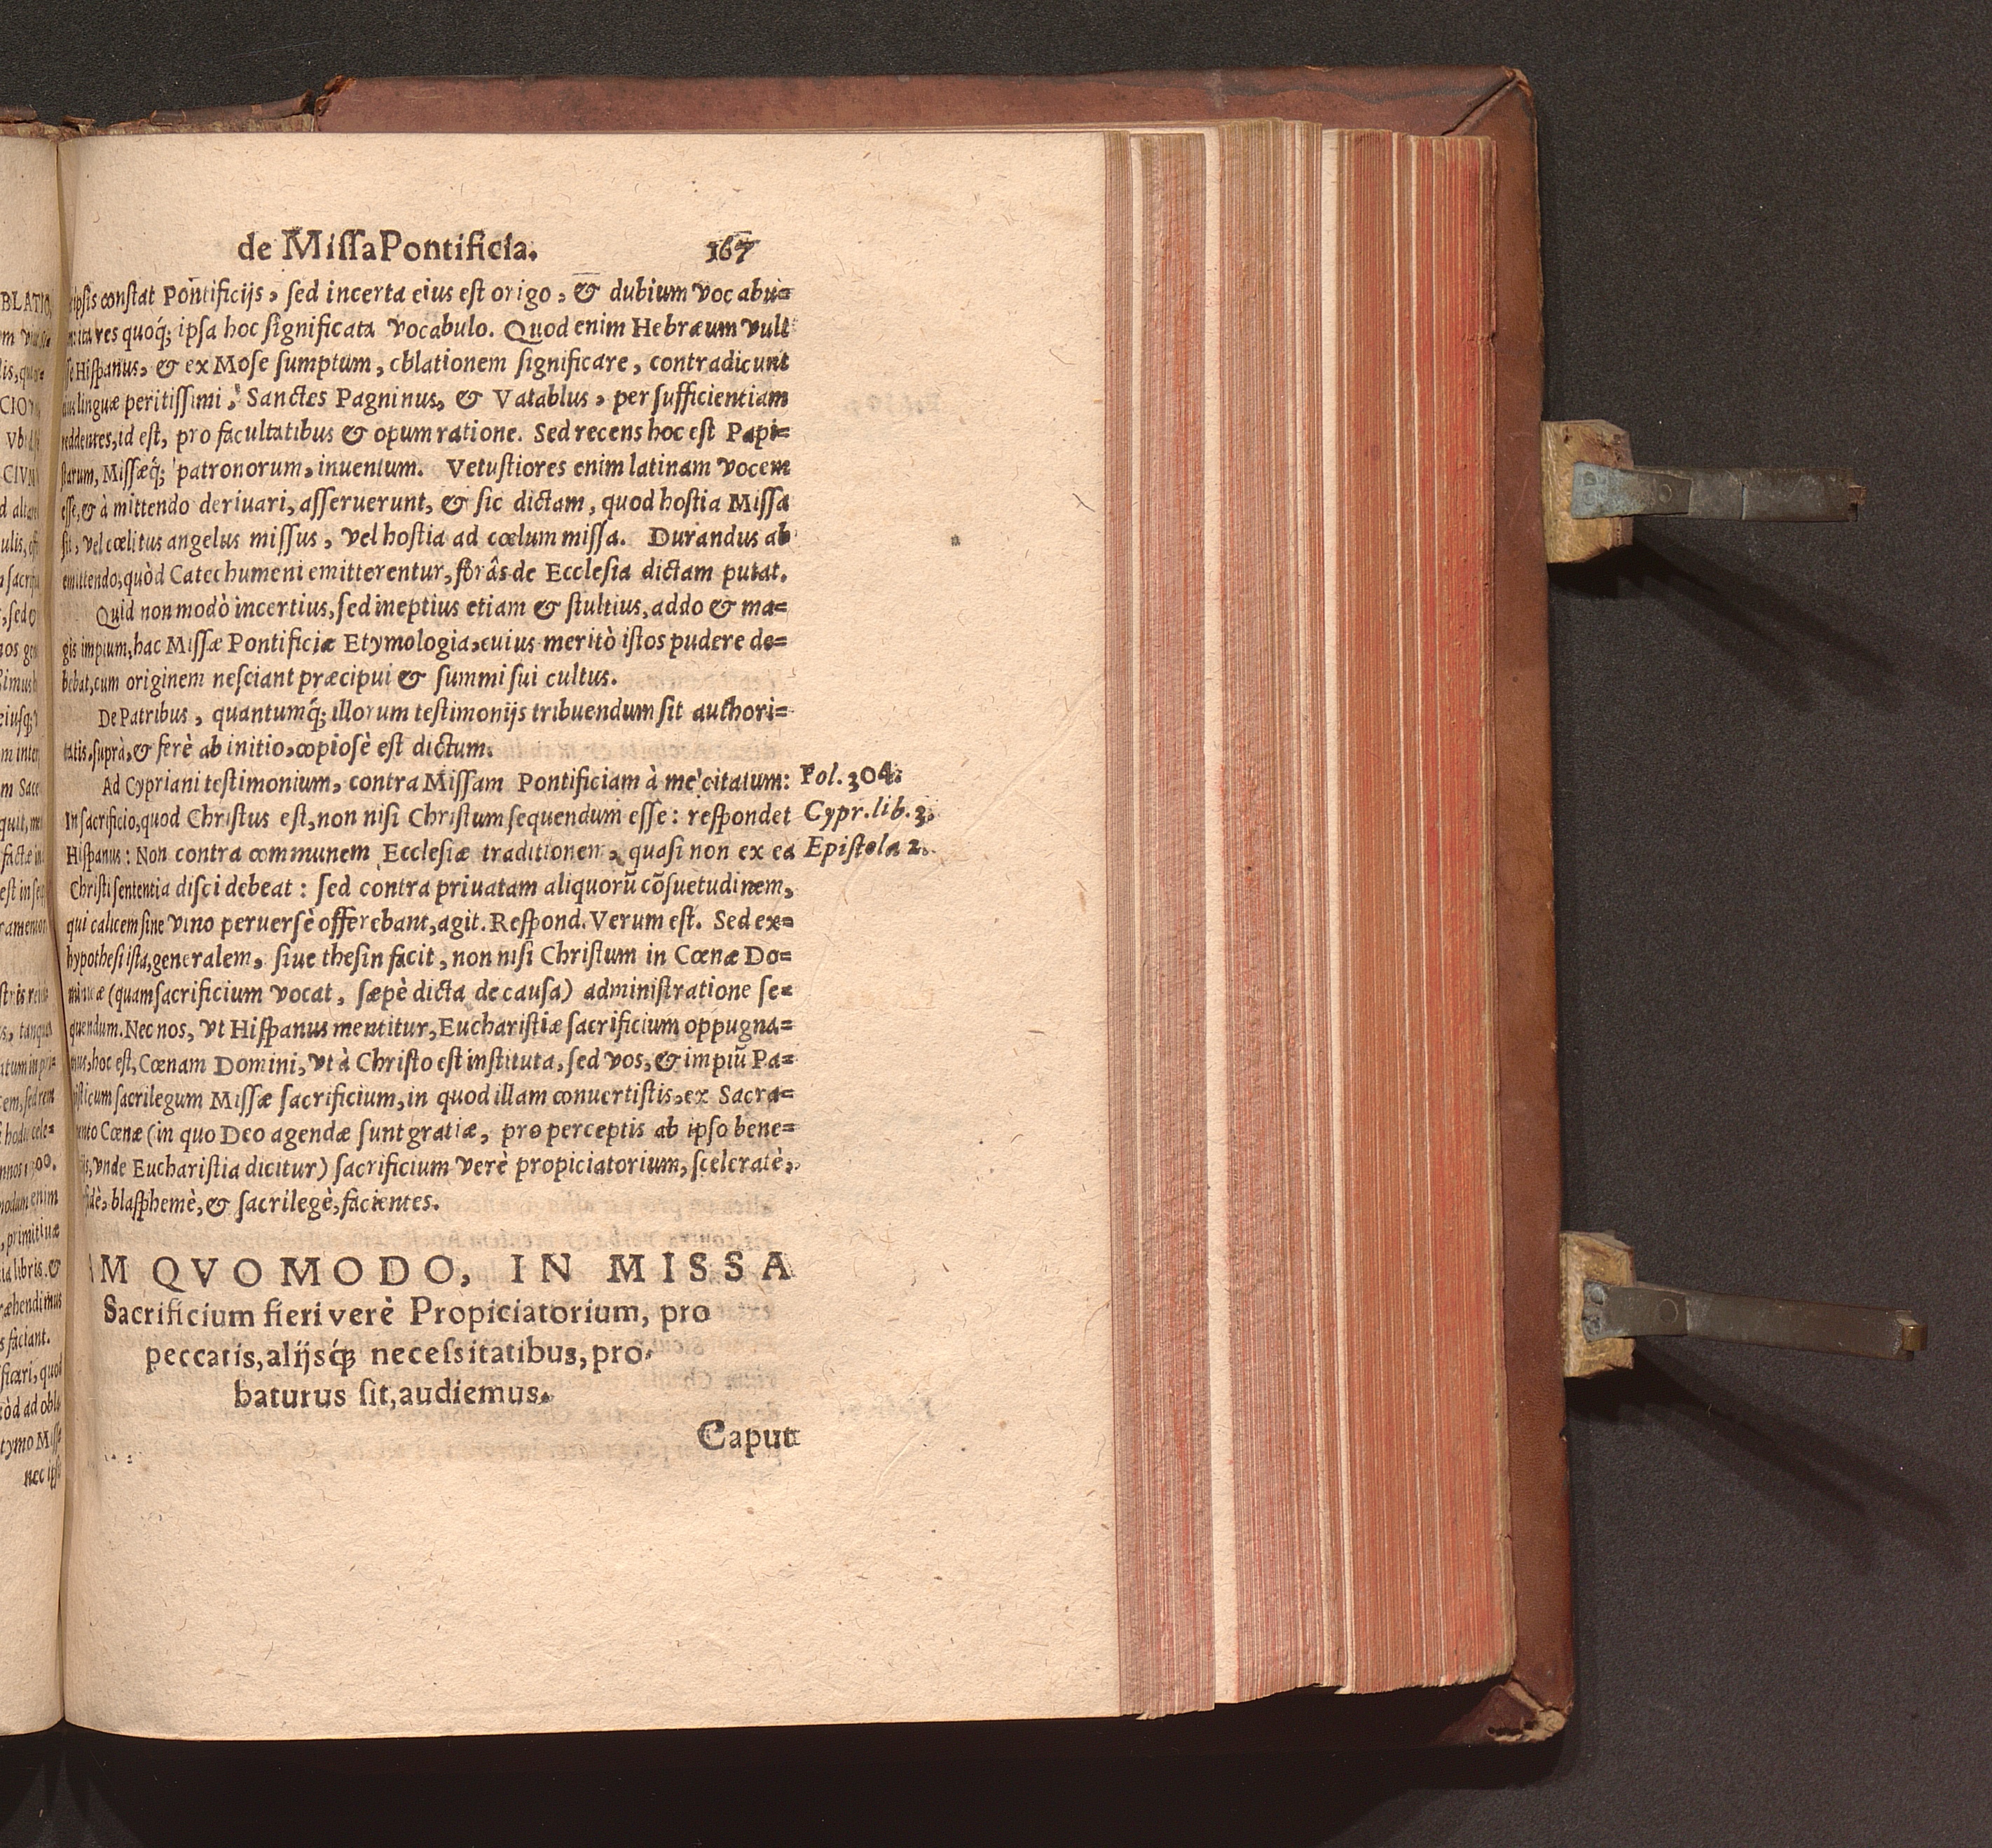 de Miſſa Pontificia. 167
ipſis conſtat Pontificijs, ſed incerta eius eſt origo, & dubium vocabu=
ita res quoq́; ipſa hoc ſignificata vocabulo. Quod enim Hebræum vult
Hiſpanus, & ex Moſe ſumptum, oblationem ſignificare, contradicunt
linguæ peritiſſimi, Sanctes Pagninus, & Vatablus, per ſufficientiam
reddentes, id eſt, pro facultatibus & opum ratione. Sed recens hoc eſt Papi=
ſtarum, Miſſæq́; patronorum, inuentum. Vetuſtiores enim latinam vocem
eſſe, & à mittendo deriuari, aſſeruerunt, & ſic dictam, quod hoſtia Miſſa
ſit, vel cœlitus angelus miſſus, vel hoſtia ad cœlum miſſa. Durandus ab
emittendo, quòd Catechumeni emitterentur, forâs de Eccleſia dictam putat.
Quid non modò incertius, ſed ineptius etiam & ſtultius, addo & ma=
gis impium, hac Miſſæ Pontificiæ Etymologia, cuius meritò iſtos pudere de=
bebat, cum originem neſciant præcipui & ſummi ſui cultus.
De Patribus, quantumq́; illorum teſtimonijs tribuendum ſit authori=
tatis, ſuprà, & ferè ab initio, copiosè eſt dictum.
Ad Cypriani teſtimonium, contra Miſſam Pontificiam à me citatum: Fol. 304.
In ſacrificio, quod Chriſtus eſt, non niſi Chriſtum ſequendum eſſe: reſpondet Cypr. lib. 3.
Hiſpanus: Non contra communem Eccleſiæ traditionem, quaſi non ex ea Epiſtola 2.
Chriſti ſententia diſci debeat: ſed contra priuatam aliquorũ cõſuetudinem,
qui calicem ſine vino peruerſè offerebant, agit. Reſpond. Verum eſt. Sed ex=
hypotheſi iſta, generalem, ſiue theſin facit, non niſi Chriſtum in Cœnæ Do=
minicæ (quam ſacrificium vocat, ſæpè dicta de cauſa) adminiſtratione ſe=
quendum. Nec nos, vt Hiſpanus mentitur, Euchariſtiæ ſacrificium oppugna=
mus, hoc eſt, Cœnam Domini, vt à Chriſto eſt inſtituta, ſed vos, & impiũ Pa=
piſticum ſacrilegum Miſſæ ſacrificium, in quod illam conuertiſtis, ex Sacra=
mento Cœnæ (in quo Deo agendæ ſunt gratiæ, pro perceptis ab ipſo bene=
vnde Euchariſtia dicitur) ſacrificium verè propiciatorium, ſceleratè,
blaſphemè, & ſacrilegè, facientes.
M QVOMODO, IN MISSA
Sacrificium fieri verè Propiciatorium, pro
peccatis, alijsq́; neceſsitatibus, pro=
baturus ſit, audiemus.
Caput